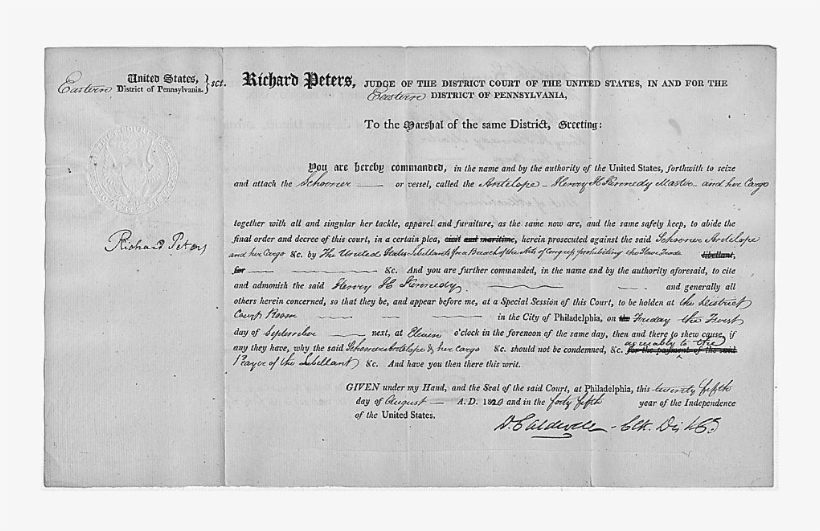 United States,
Eastern District of Pennsylvania. } sct.
Richard Peters, JUDGE OF THE DISTRICT COURT OF THE UNITED STATES, IN AND FOR THE
Eastern DISTRICT OF PENNSYLVANIA,
To the Marshal of the same District, Greeting:
You are hereby commanded, in the name and by the authority of the United States, forthwith to seize
and attach the Schooner or vessel, called the Antelope Henry H Kennedy Master and her Cargo
together with all and singular her tackle, apparel and furniture, as the same now are, and the same safely keep, to abide the
final order and decree of this court, in a certain plea, civil and maritime, herein prosecuted against the said Schooner Antelope
and her Cargo &c. by The United States Libellants for a Breach of the Acts of Congress prohibiting the Slave Trade libellant,
for &c. And you are further commanded, in the name and by the authority aforesaid, to cite
and admonish the said Henry H Kennedy and generally all
others herein concerned, so that they be, and appear before me, at a Special Session of this Court, to be holden at the District
Court Room in the City of Philadelphia, on the Friday the First
day of September next, at Eleven o'clock in the forenoon of the same day, then and there to shew cause, if
any they have, why the said Schooner Antelope & her Cargo &c. should not be condemned, &c. for the payment of the said agreeably to the
Prayer of the Libellant &c. And have you then there this writ.
GIVEN under my Hand, and the Seal of the said Court, at Philadelphia, this twenty fifth
day of August A.D. 1820 and in the forty fifth year of the Independence
of the United States.
D. Caldwell Clk. Dist Ct
Richard Peters